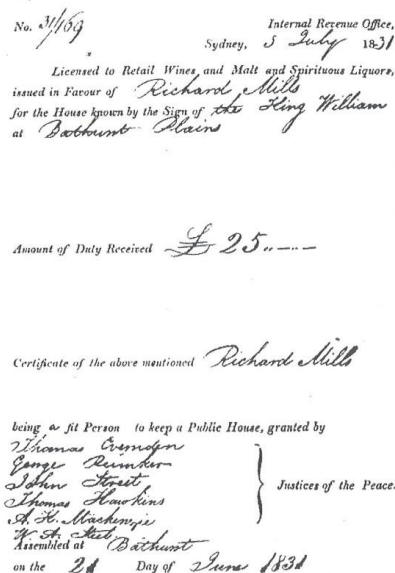 No. 31/169 Internal Revenue Office,
Sydney, 5 July 1831
Licensed to Retail Wines, and Malt and Spirituous Liquors,
issued in Favour of Richard Mills
for the House known by the Sign of the King William
at Bathurst Plains
Amount of Duty Received £ 25 ..-.-
Certificate of the above mentioned Richard Mills
being a fit Person to keep a Public House, granted by
Thomas Evernden
George
John Street
Thomas Hawkins
A. K. Mackenzie
W. A. Steel
Justices of the Peace.
Assembled at Bathurst
on the 21 Day of June 1831